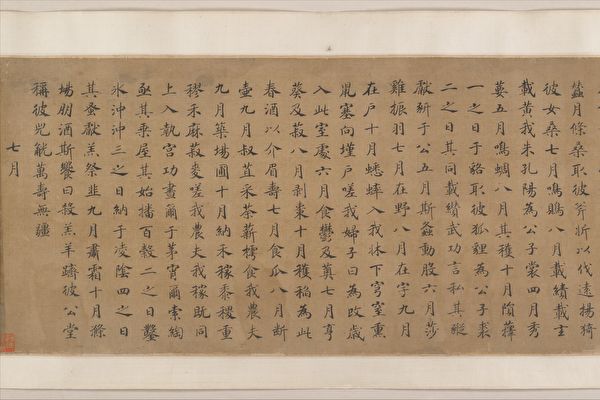 蠶月條桑取彼斧斨以伐遠揚猗
彼女桑七月鳴鵙八月載績載玄
載黃我朱孔陽為公子裳四月秀
葽五月鳴蜩八月其穫十月隕蘀
一之日于貉取彼狐狸為公子裘
二之日其同載纘武功言私其豵
獻豜于公五月斯螽動股六月莎
雞振羽七月在野八月在宇九月
在戶十月蟋蟀入我牀下穹窒熏
鼠塞向墐戶嗟我婦子曰為改歲
入此室處六月食鬱及薁七月亨
葵及菽八月剝棗十月穫稻為此
春酒以介眉壽七月食瓜八月斷
壺九月叔苴采荼薪樗食我農夫
九月築場圃十月納禾稼黍稷重
穋禾麻菽麥嗟我農夫我稼既同
上入執宮功晝爾于茅宵爾索綯
亟其乘屋其始播百穀二之日鑿
冰沖沖三之日納于凌陰四之日
其蚤獻羔祭韭九月肅霜十月滌
場朋酒斯饗曰殺羔羊躋彼公堂
稱彼兕觥萬壽無疆
七月